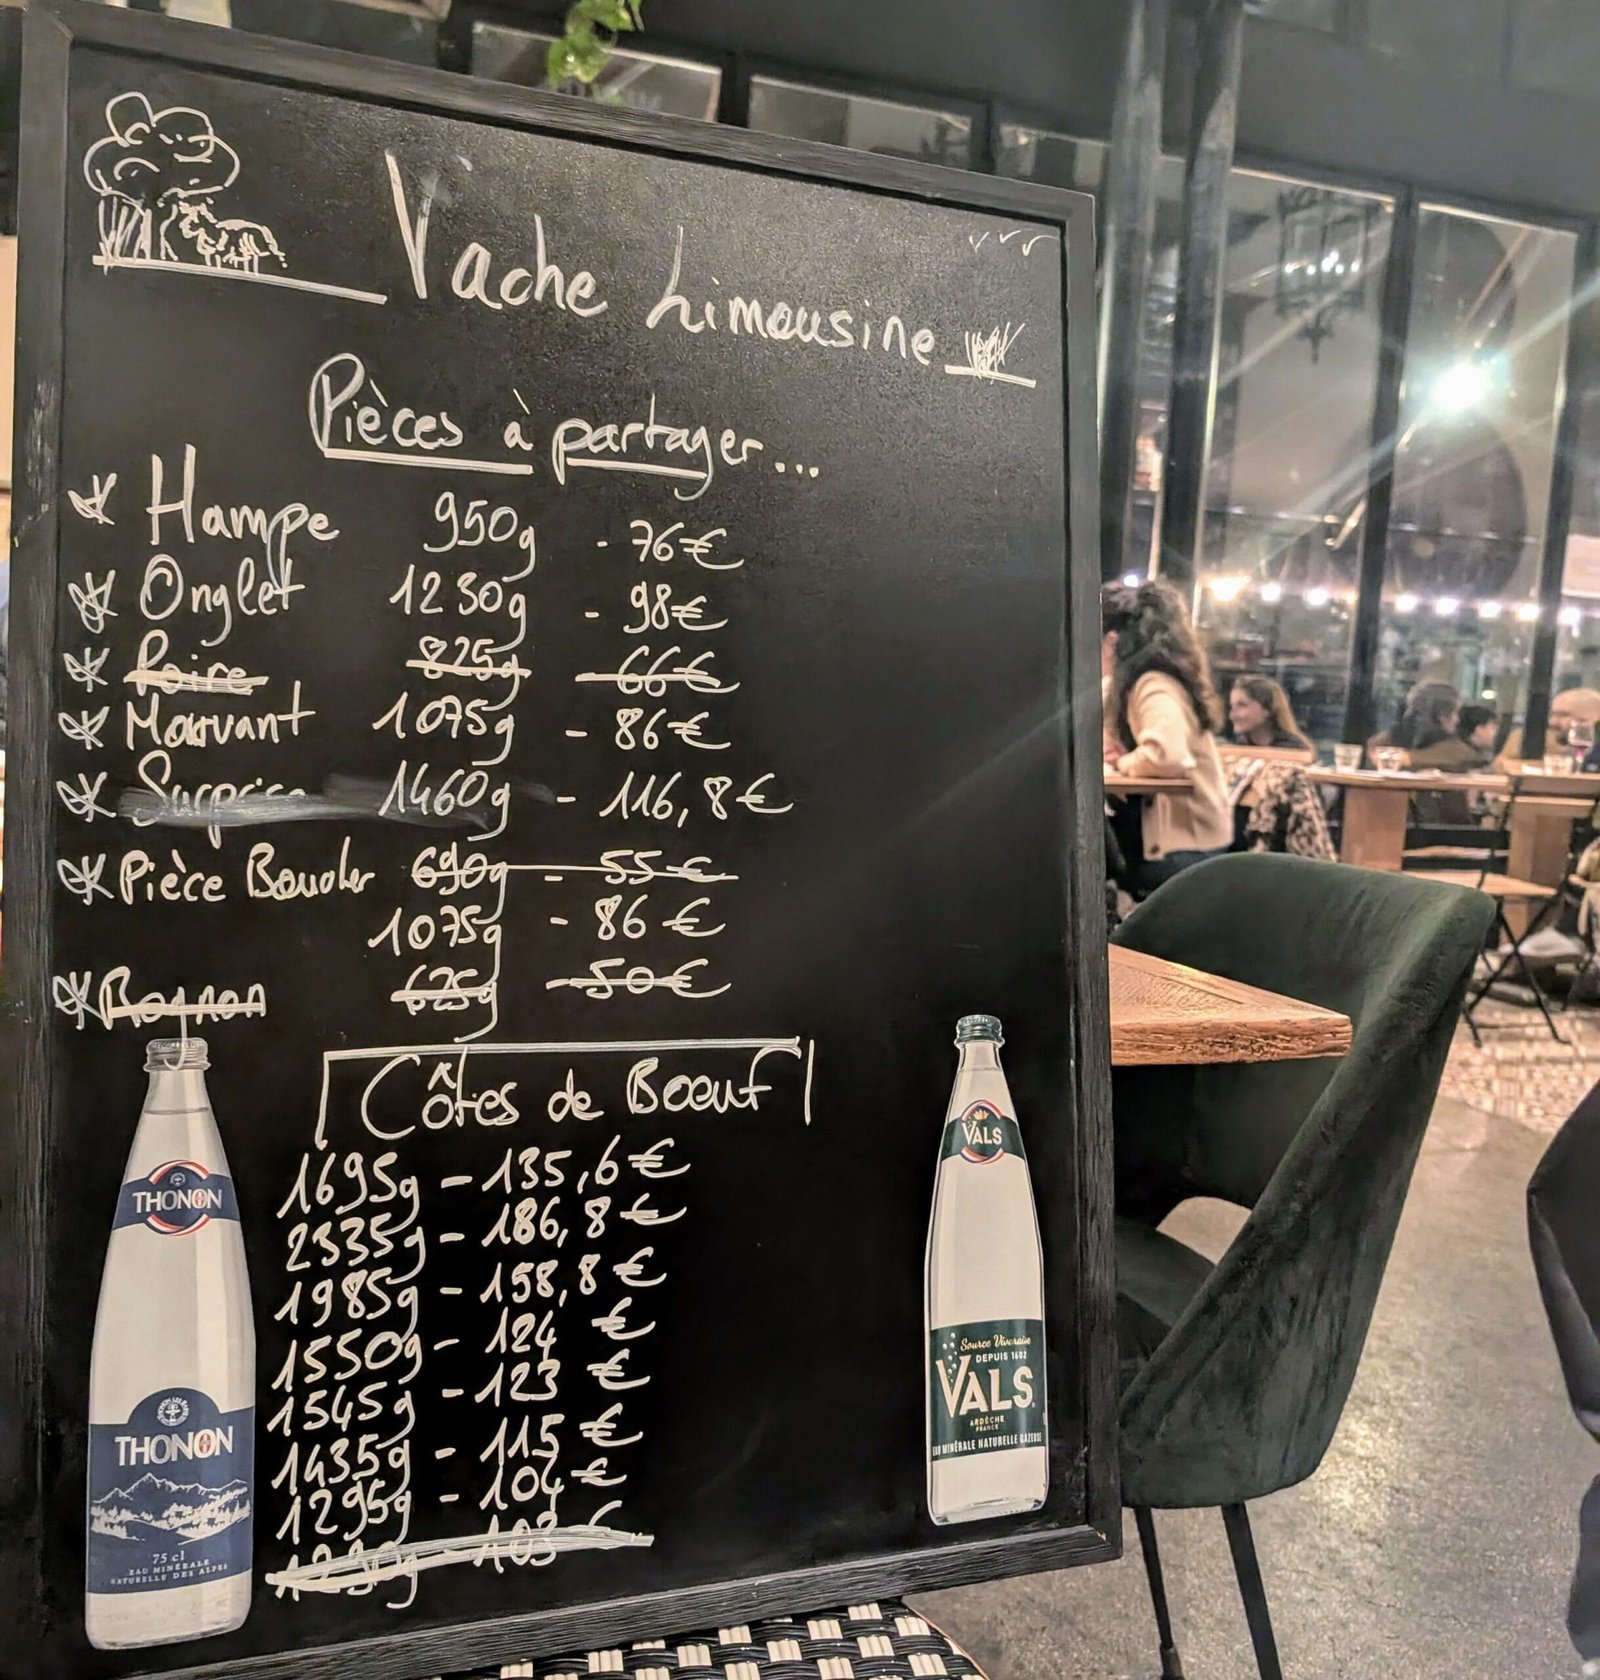 Vache Limousine
Pièces à partager...
Hampe 950g - 76€
Onglet 1230g - 98€
Poire 825g - 66€
Morvant 1075g - 86€
Surprise 1460g - 116,8€
Pièce Boucher 690g - 55€
1075g - 86€
Rognon 625g - 50€
Côtes de Boeuf
1695g - 135,6€
2335g - 186,8€
1985g - 158,8€
1550g - 124€
1545g - 123€
1435g - 115€
1295g - 104€
103€
THONON
THONON
75 cl
EAU MINÉRALE
NATURELLE DES ALPES
VALS
Source Vivaraise
DEPUIS 1602
VALS
ARDÈCHE
FRANCE
EAU MINÉRALE NATURELLE GAZEUSE